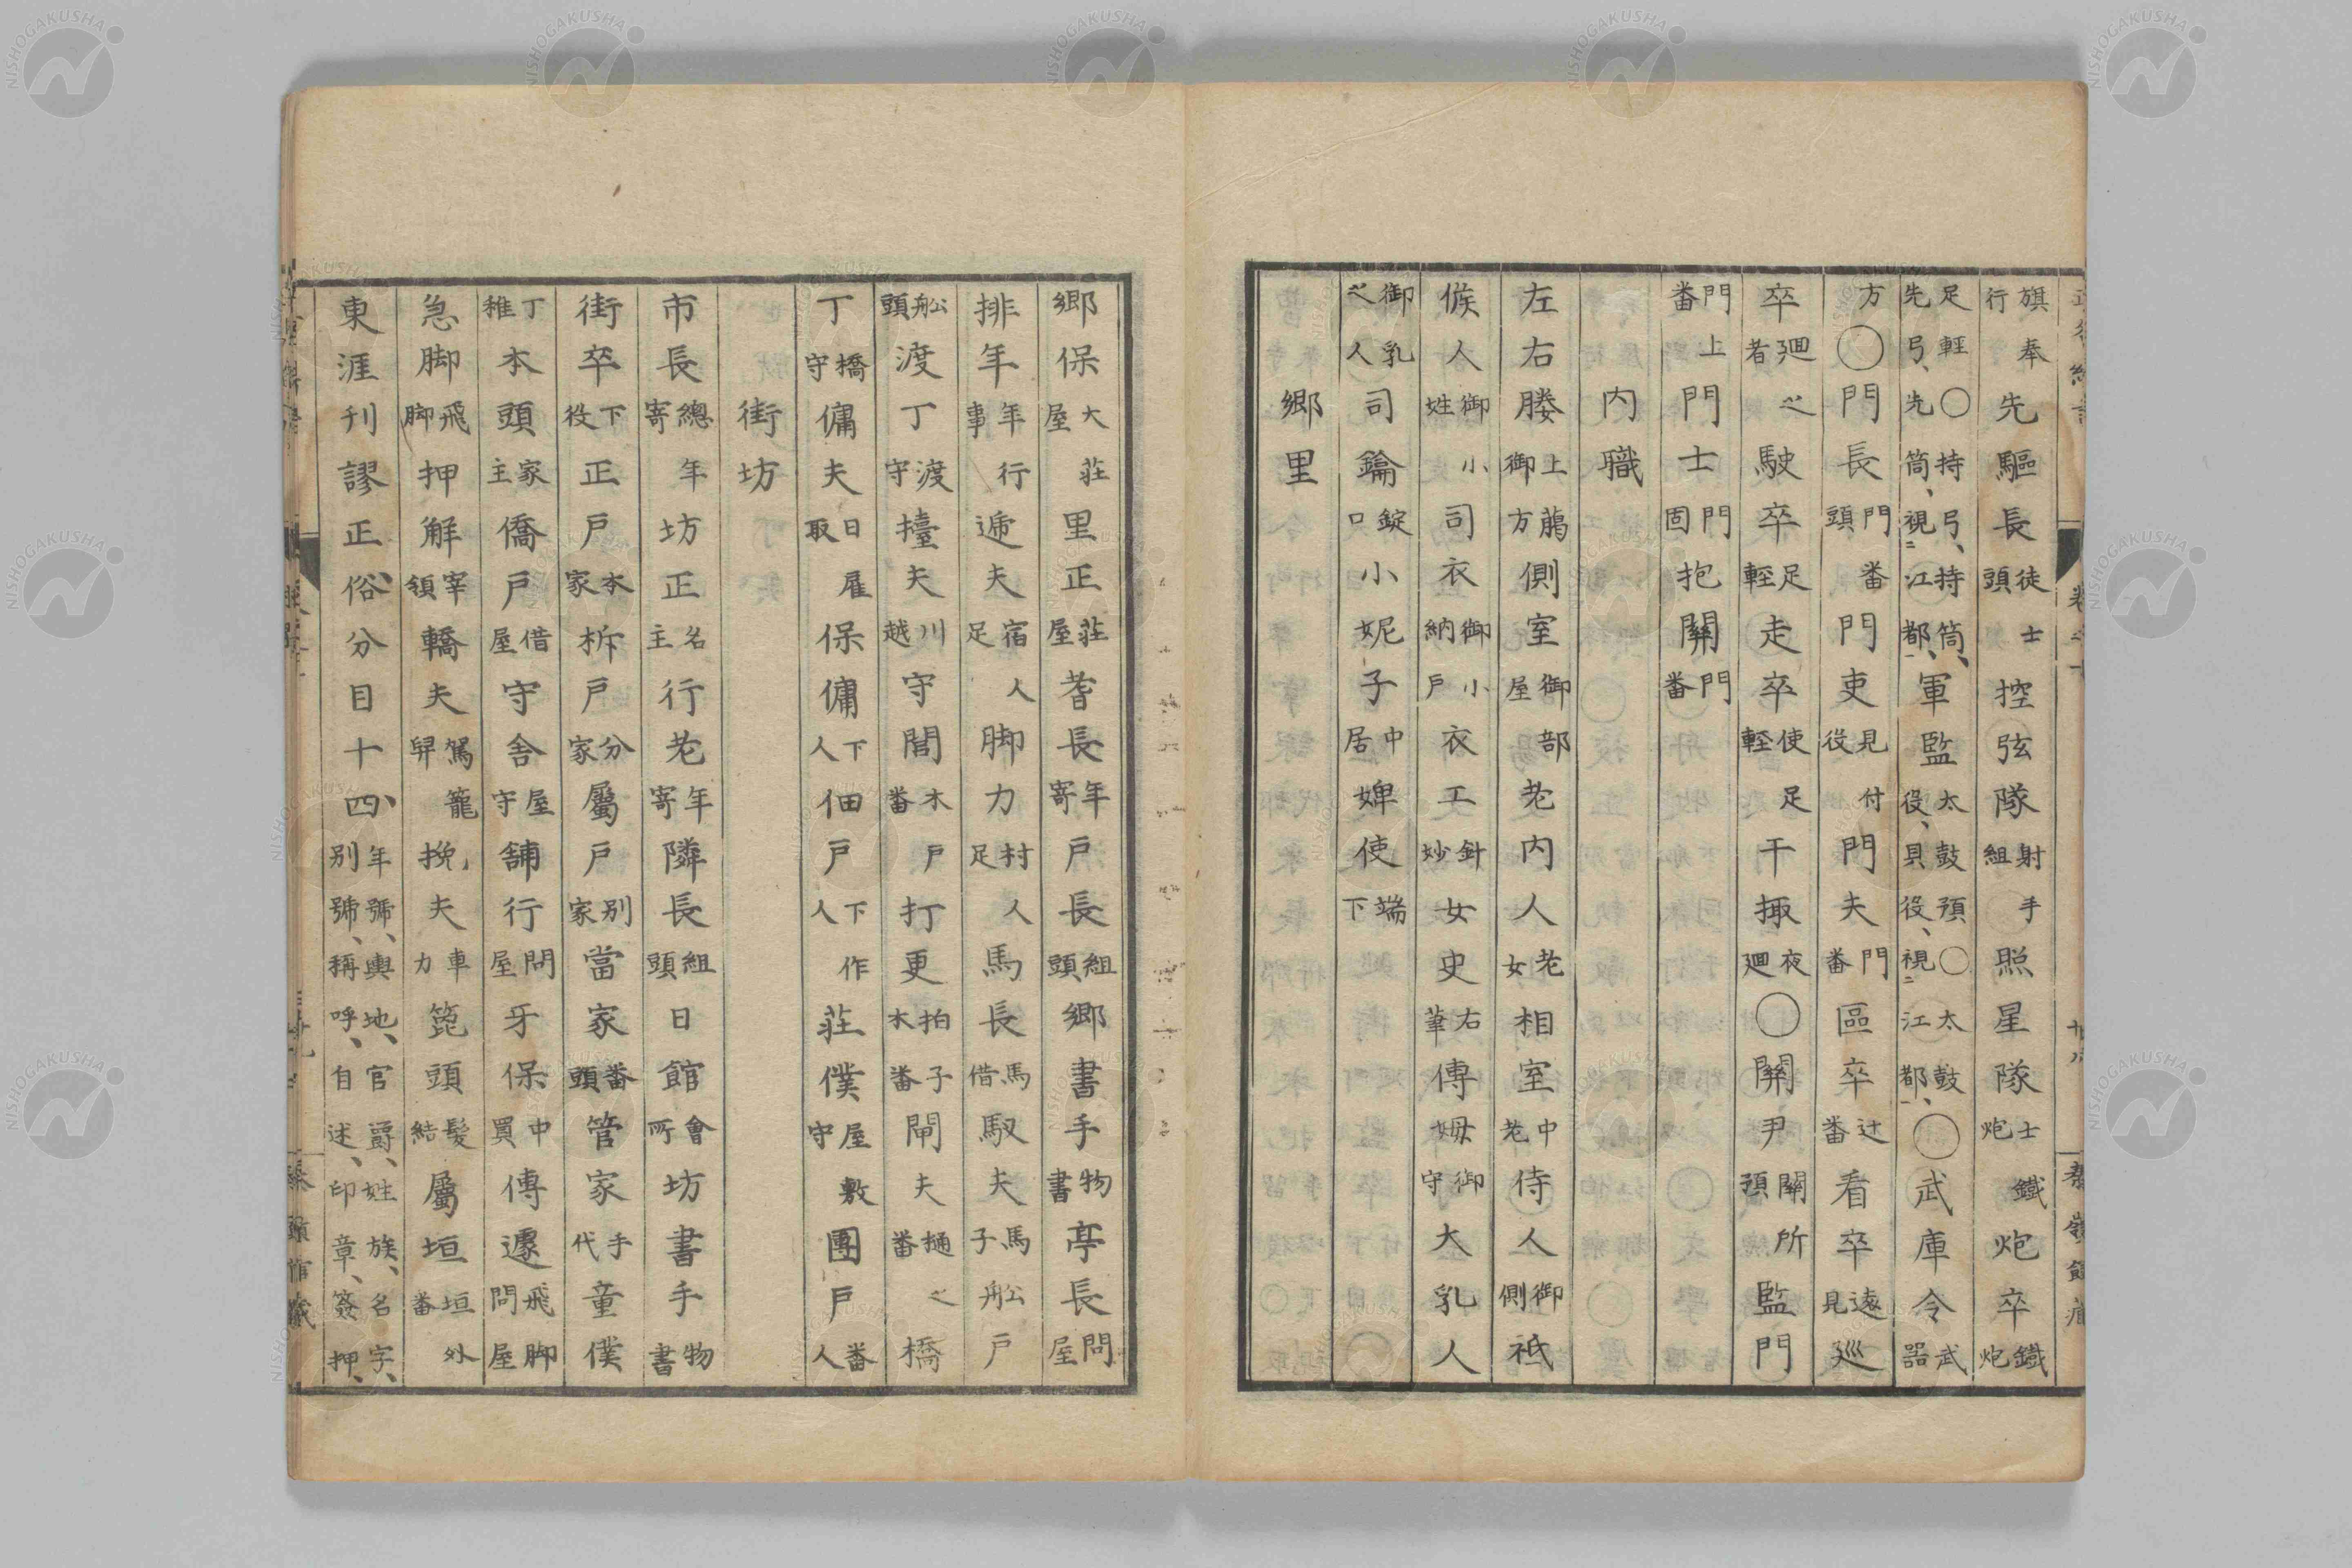 旗奉行先驅長徒士頭控弦隊射手組照星隊士鐵炮炮卒鐵炮
足輕○持弓、持筒、先弓、先筒、視二江都一、軍監太鼓預○太鼓役、貝役、視二江都一、○武庫令武器
方○門長門番頭門吏見付役門夫門番區卒辻番看卒遠見巡
卒廻之者駛卒足輕走卒使足輕干掫夜廻○關尹關所預監門
門上番門士門固抱關門番
內職
左右媵上﨟御方側室御部屋老內人老女相室中老侍人御側祗
候人御小姓司衣御小納戶衣工針妙女史右筆傅姆御守大乳人
御乳之人司鑰錠口小妮子中居婢使端下
鄉里
鄉保大莊屋里正莊屋耆長年寄戶長組頭鄉書手物書亭長問屋
排年年行事遞夫宿人足脚力村人足馬長馬借馭夫馬子舩戶
舩頭渡丁渡守擡夫川越守閭木戶番打更拍子木番閘夫樋之番橋
丁橋守傭夫日雇取保傭下人佃戶下作人莊僕屋敷守團戶番人
街坊
市長總年寄坊正名主行老年寄隣長組頭日館會所坊書手物書
街卒下役正戶本家析戶分家屬戶別家當家番頭管家手代童僕
丁稚本頭家主僑戶借屋守舍屋守舖行問屋牙保中買傳遽飛脚問屋
急脚飛脚押解宰領轎夫駕籠舁挽夫車力篦頭髮結屬垣垣外番
東涯刊謬正俗、分目十四、年號、輿地、官爵、姓族、名字、別號、稱呼、自述、印章、簽押、